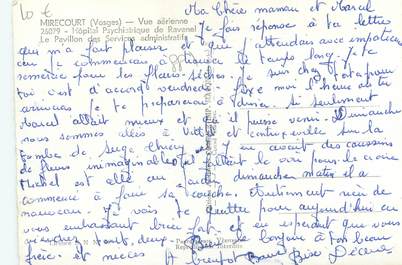 10 €
MIRECOURT (Vosges) — Vue aérienne
26079 - Hôpital Psychiatrique de Ravenel
Le Pavillon des Services administratifs
Ma Chère maman et Marcel
Je fais réponse à ta lettre
qui m'a fait plaisir et que j'attendais avec impatience
car je commençais à trouver le temps long. Je te
remercie pour les fleurs séchés. Je suis chez
toi c'est d'accord vendredi. moi l'heure où tu
arriveras je te préparerai à dîner. Si seulement
Marcel allait mieux et qu'il puisse venir. Dimanche
nous sommes allés à Vittel et Contrexéville sur la
tombe de Serge Thiéry. Il y en avait des coussins
de fleurs inimaginable il allait le voir pour le croire
Michel est allé au jardin dimanche matin il a
commencé à faire sa couche. Autrement rien de
nouveau. Je vais te quitter pour aujourd'hui en
vous embrassant bien fort et en espérant que vous
viendrez tout deux. bonjour à ton beau
frère et nièces A bientôt Bons Bises